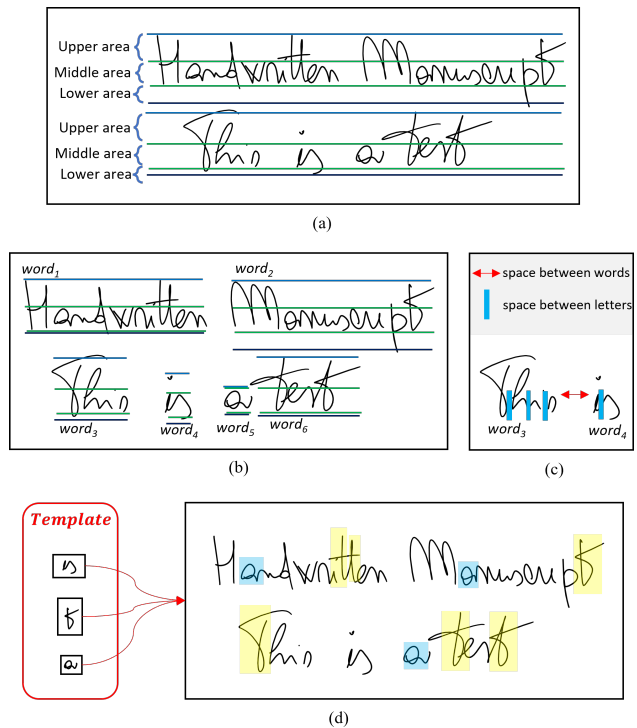 Upper area
Middle area
Lower area
Handwritten Manuscript
Upper area
Middle area
Lower area
This is a test
(a)
word1 word2
Handwritten Manuscript
This is a test
word3 word4 word5 word6
(b)
space between words
space between letters
This is
word3 word4
(c)
Template
is
t
a
Handwritten Manuscript
This is a test
(d)